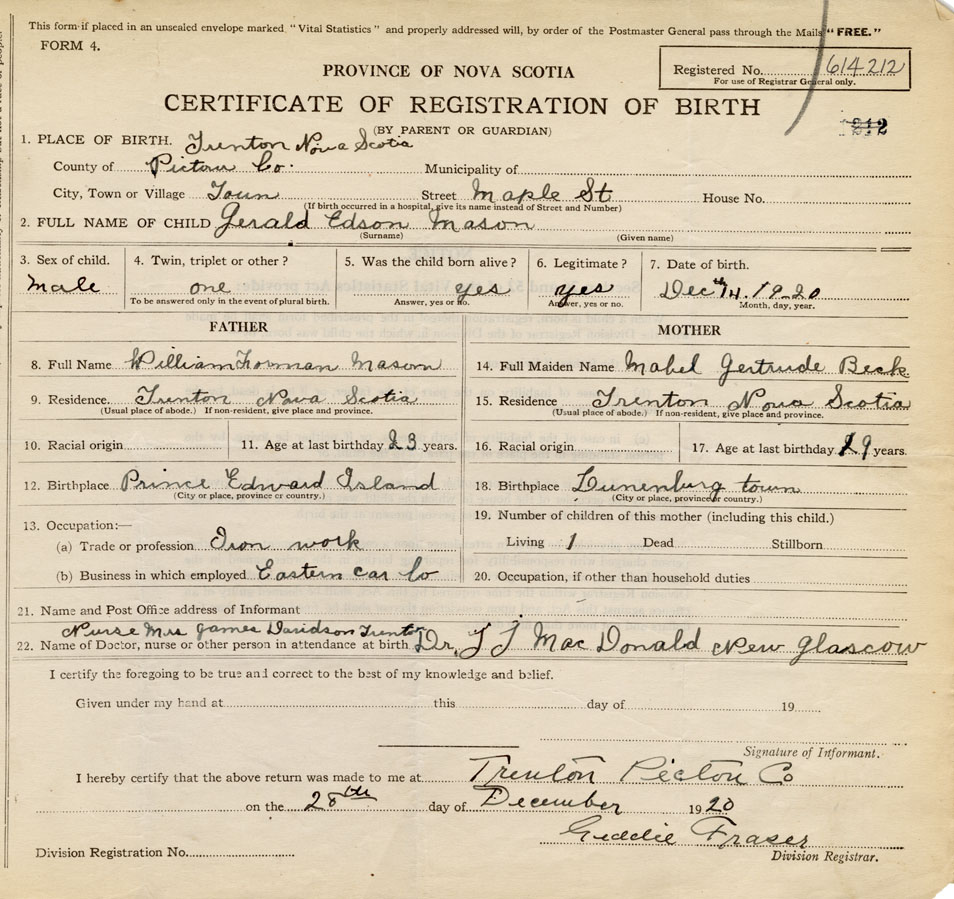 This form if placed in an unsealed envelope marked "Vital Statistics" and properly addressed will, by order of the Postmaster General pass through the Mails "FREE."
FORM 4.
PROVINCE OF NOVA SCOTIA
Registered No. 614212
For use of Registrar General only.
CERTIFICATE OF REGISTRATION OF BIRTH
(BY PARENT OR GUARDIAN)
1. PLACE OF BIRTH. Trenton Nova Scotia
County of Pictou Co. Municipality of
City, Town or Village Town Street Maple St House No.
(If birth occurred in a hospital, give its name instead of Street and Number)
2. FULL NAME OF CHILD Gerald Edson Mason
(Surname) (Given name)
3. Sex of child. 4. Twin, triplet or other? 5. Was the child born alive? 6. Legitimate? 7. Date of birth.
Male one yes yes Dec 14 1920
To be answered only in the event of plural birth. Answer, yes or no. Answer, yes or no. Month, day, year.
FATHER MOTHER
8. Full Name William Forman Mason 14. Full Maiden Name Mabel Gertrude Beck
9. Residence. Trenton Nova Scotia 15. Residence Trenton Nova Scotia
(Usual place of abode.) If non-resident, give place and province. (Usual place of abode.) If non-resident, give place and province.
10. Racial origin 11. Age at last birthday 23 years. 16. Racial origin 17. Age at last birthday 19 years.
12. Birthplace Prince Edward Island 18. Birthplace Lunenburg town
(City or place, province or country.) (City or place, province or country.)
13. Occupation:— 19. Number of children of this mother (including this child.)
(a) Trade or profession Iron work Living 1 Dead Stillborn
(b) Business in which employed Eastern Car Co 20. Occupation, if other than household duties
21. Name and Post Office address of Informant
Nurse Mrs James Davidson Trenton
22. Name of Doctor, nurse or other person in attendance at birth Dr. J J MacDonald New Glascow
I certify the foregoing to be true and correct to the best of my knowledge and belief.
Given under my hand at this day of 19
Signature of Informant.
I hereby certify that the above return was made to me at Trenton Picton Co
on the 28th day of December 1920
Geddie Fraser
Division Registration No. Division Registrar.